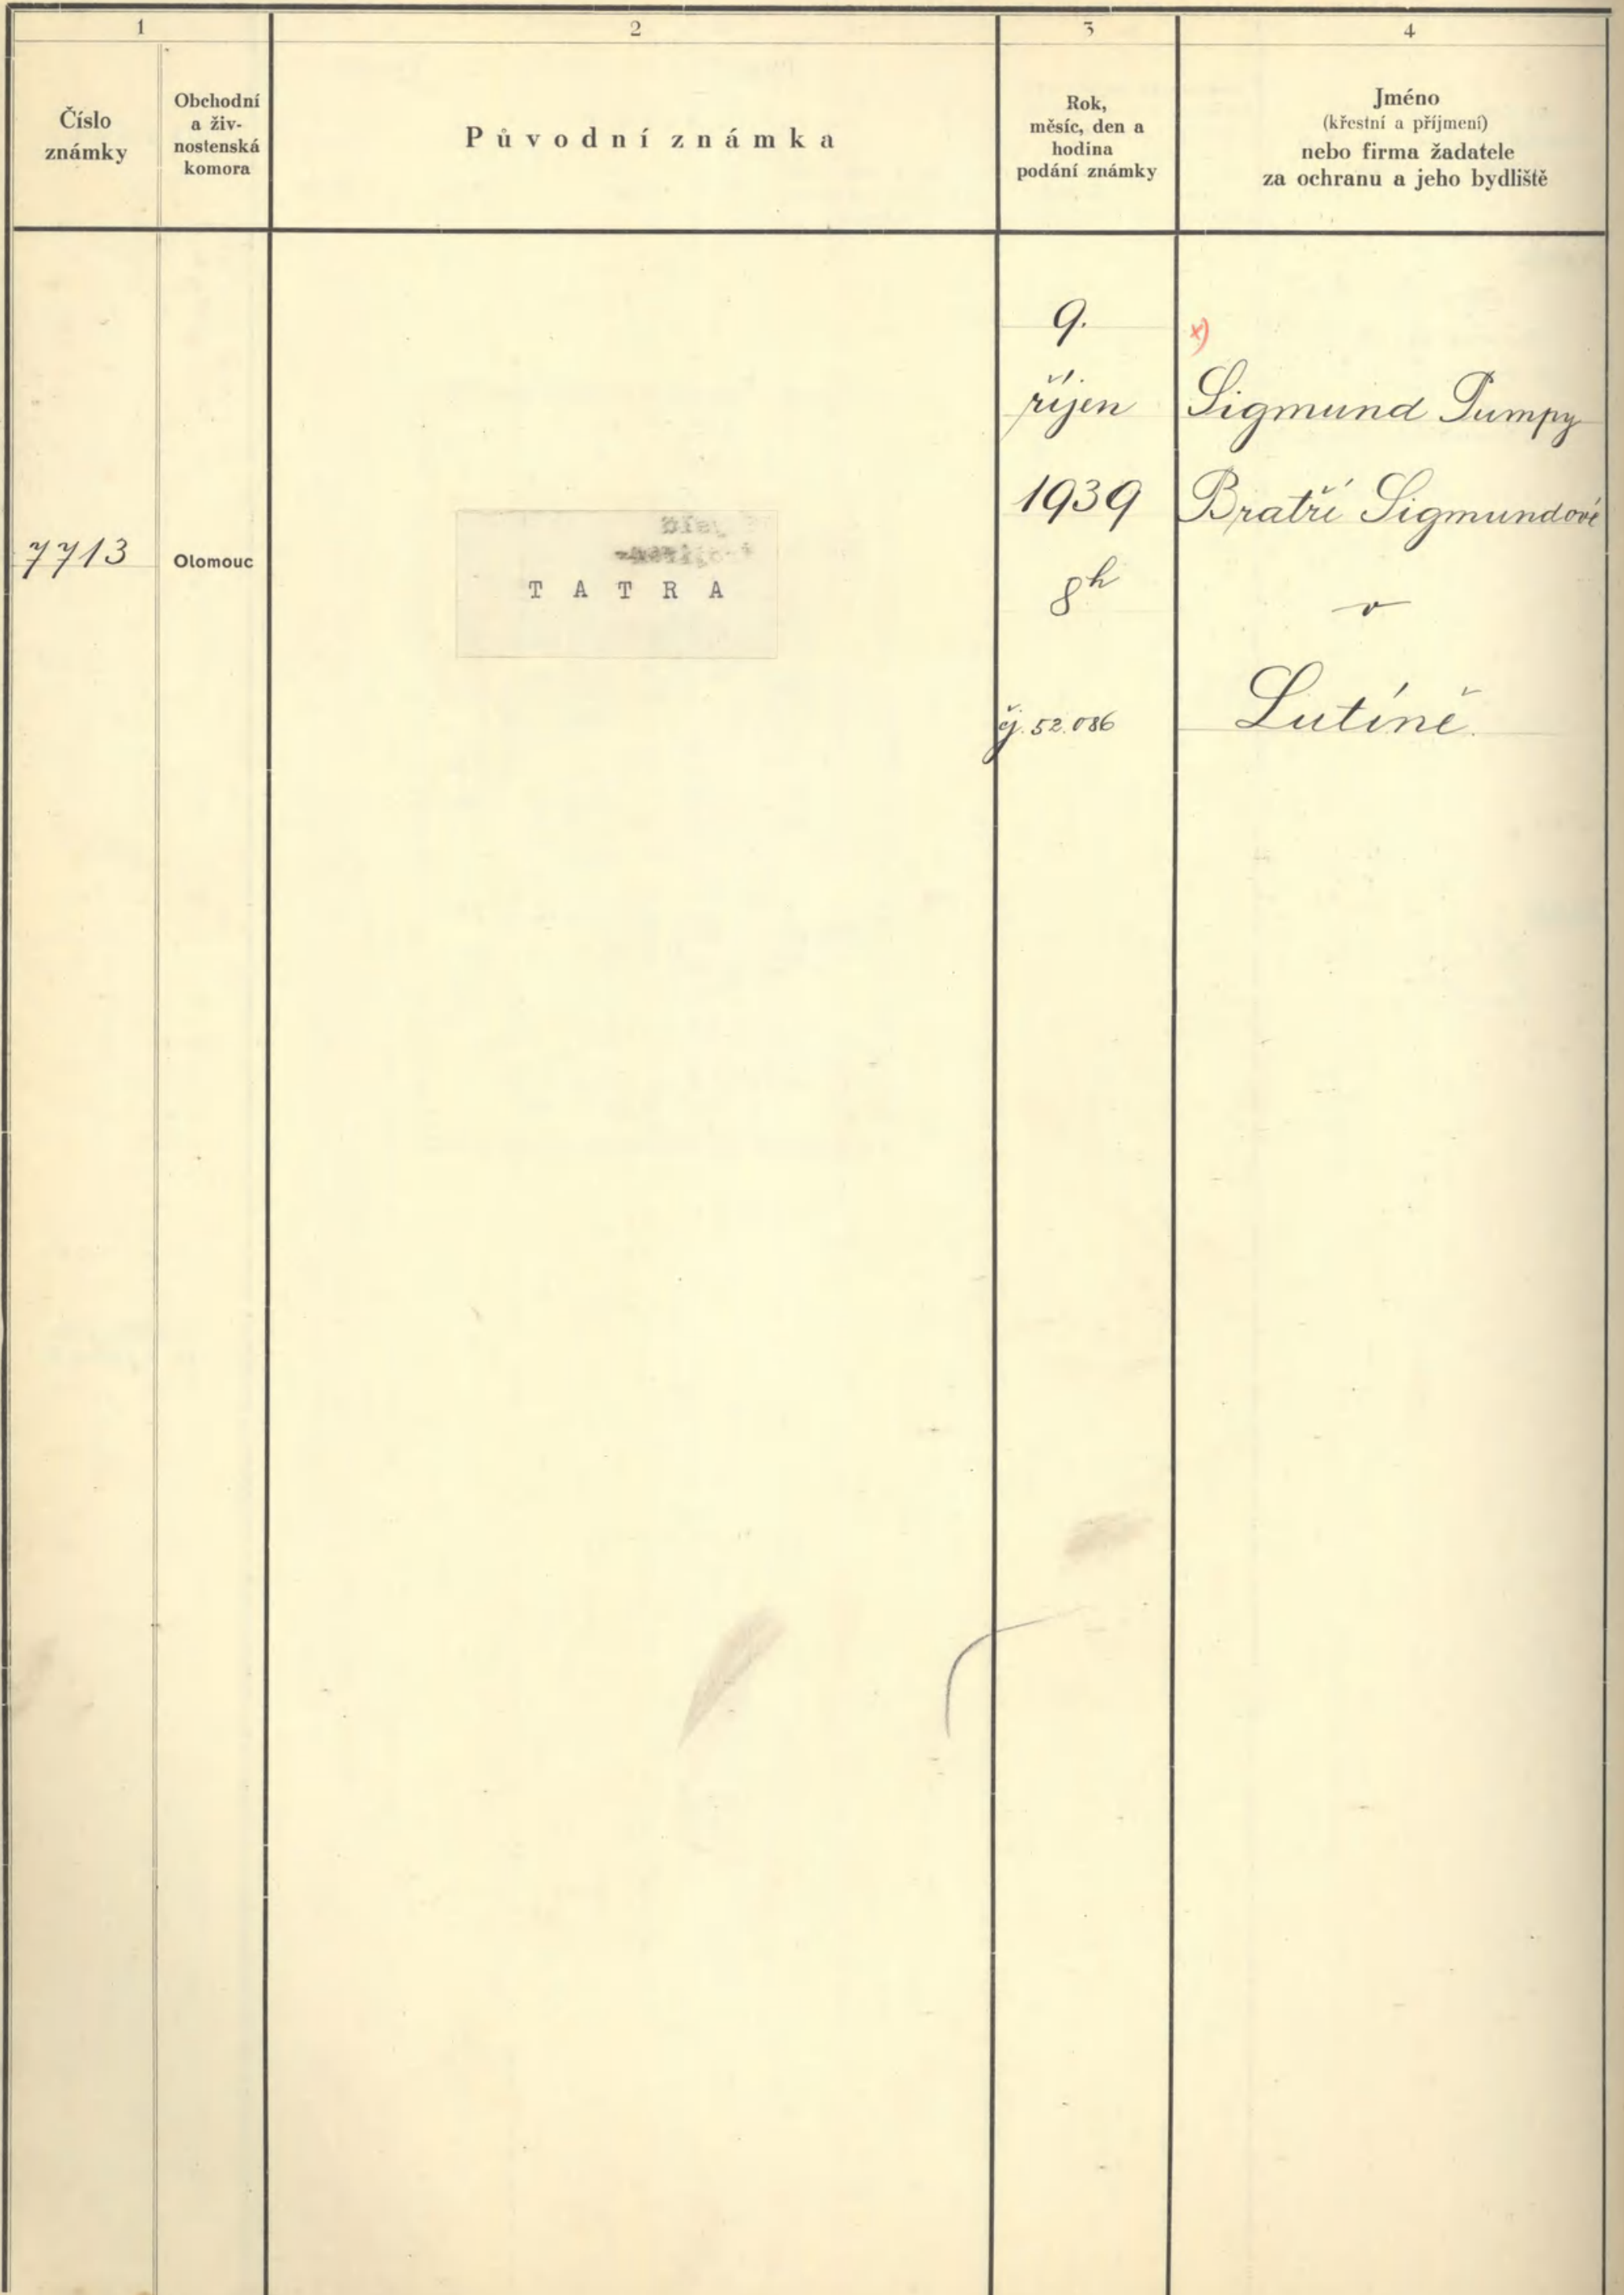 1
2
3
4
Číslo
známky
Obchodní
a živ-
nostenská
komora
Původní známka
Rok,
měsíc, den a
hodina
podání známky
Jméno
(křestní a příjmení)
nebo firma žadatele
za ochranu a jeho bydliště
7713
Olomouc
TATRA
9.
říjen
1939
8h
čj. 52.086
x)
Sigmund Pumpy
Bratři Sigmundové
v
Lutíně.